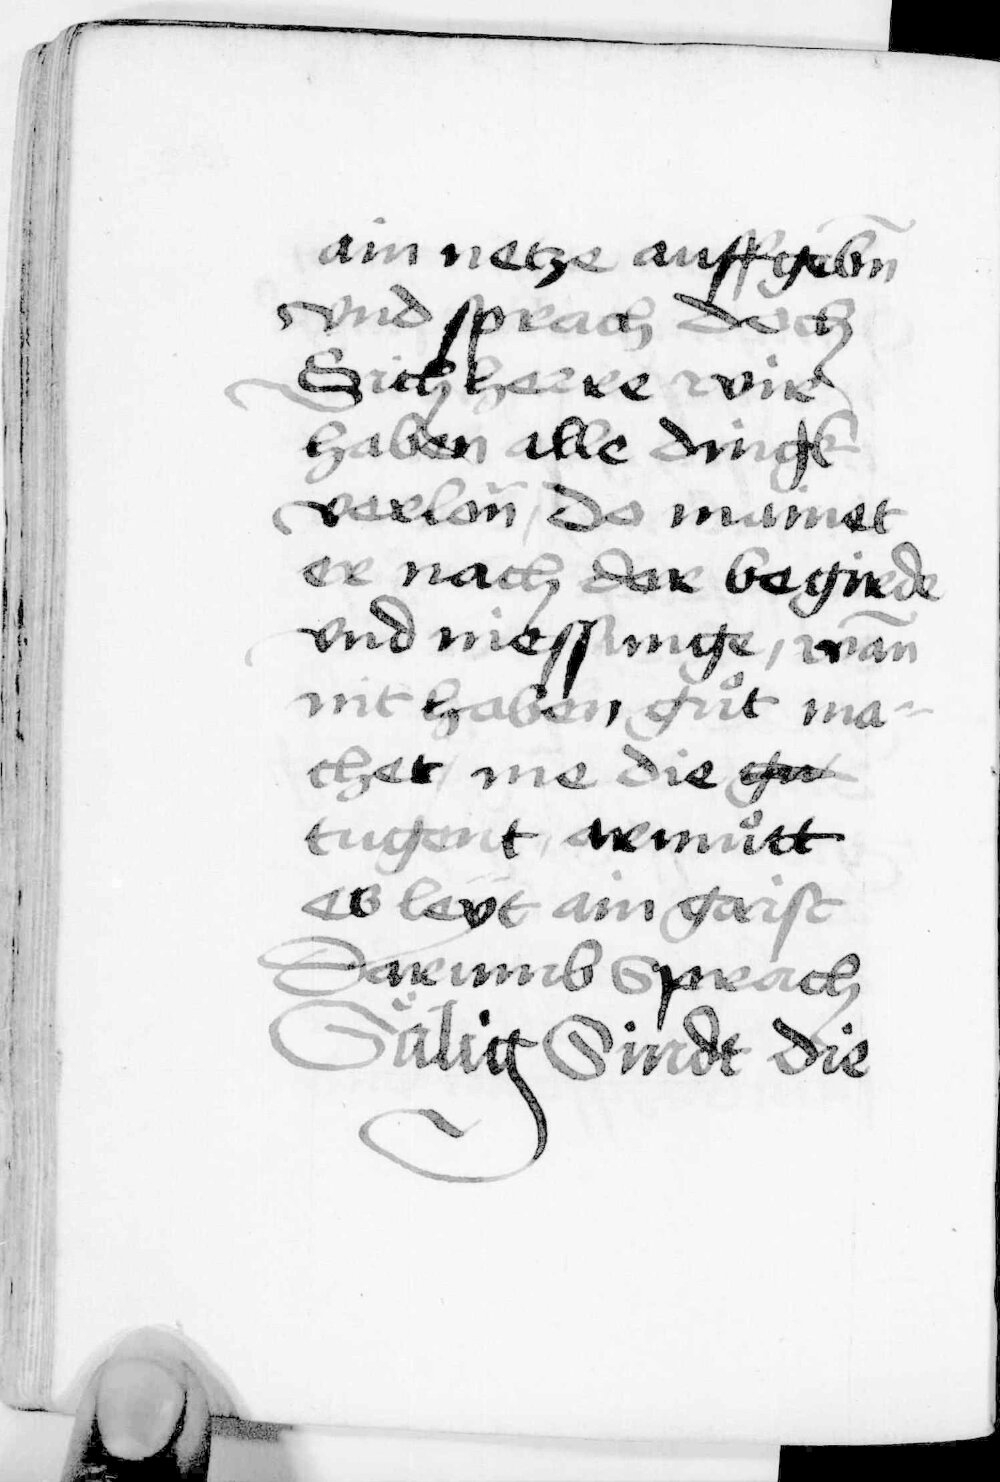 ain netze auffgebn̄
vnd sprach doch
Sich herre wir
haben alle dingk
verlon̄ / Do mainet
er nach der begirde
vnd niessunge / wan̄
nit haben gůt ma-
chet / me die gu
tugent / armůtt
es leyt ain gaist
Darumb Sprach
Sälig Sindt die